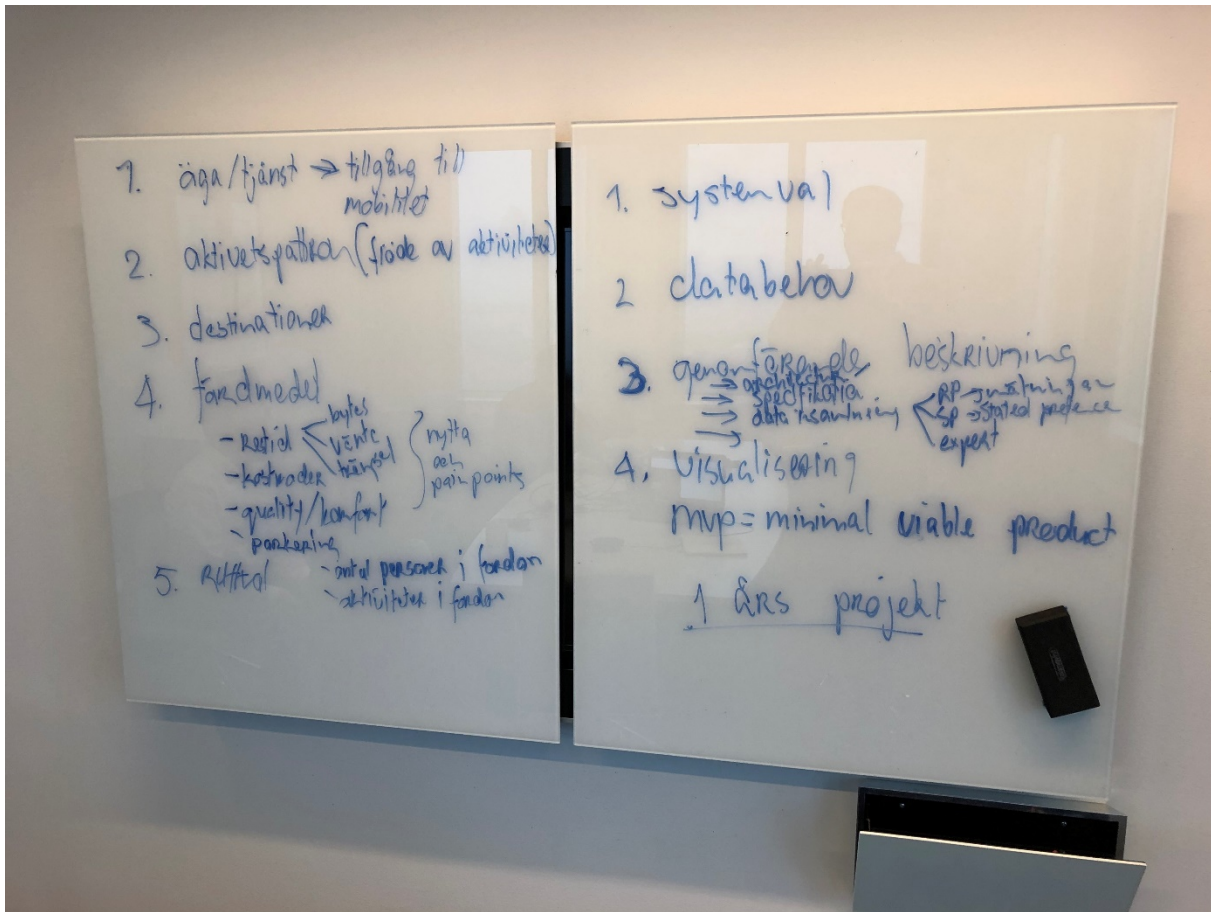 1. äga/tjänst → tillgång till
mobilitet
2. aktivetspattron (flöde av aktiviteter)
3. destinationer
4. färdmedel
- restid
bytes
vänte
trängsel
- kostnader
- quality/komfort
- parkering
nytta
och
pain points
5. Ruttval
- antal personer i fordon
- aktiviteter i fordon
1. systemval
2 databehov
3. genomförande beskrivning
→ architectur
→ specifikatia
→ data insamlning
→
RP → mätningar
SP → Stated preference
expert
4. visualisering
mvp = minimal viable product
1 års projekt